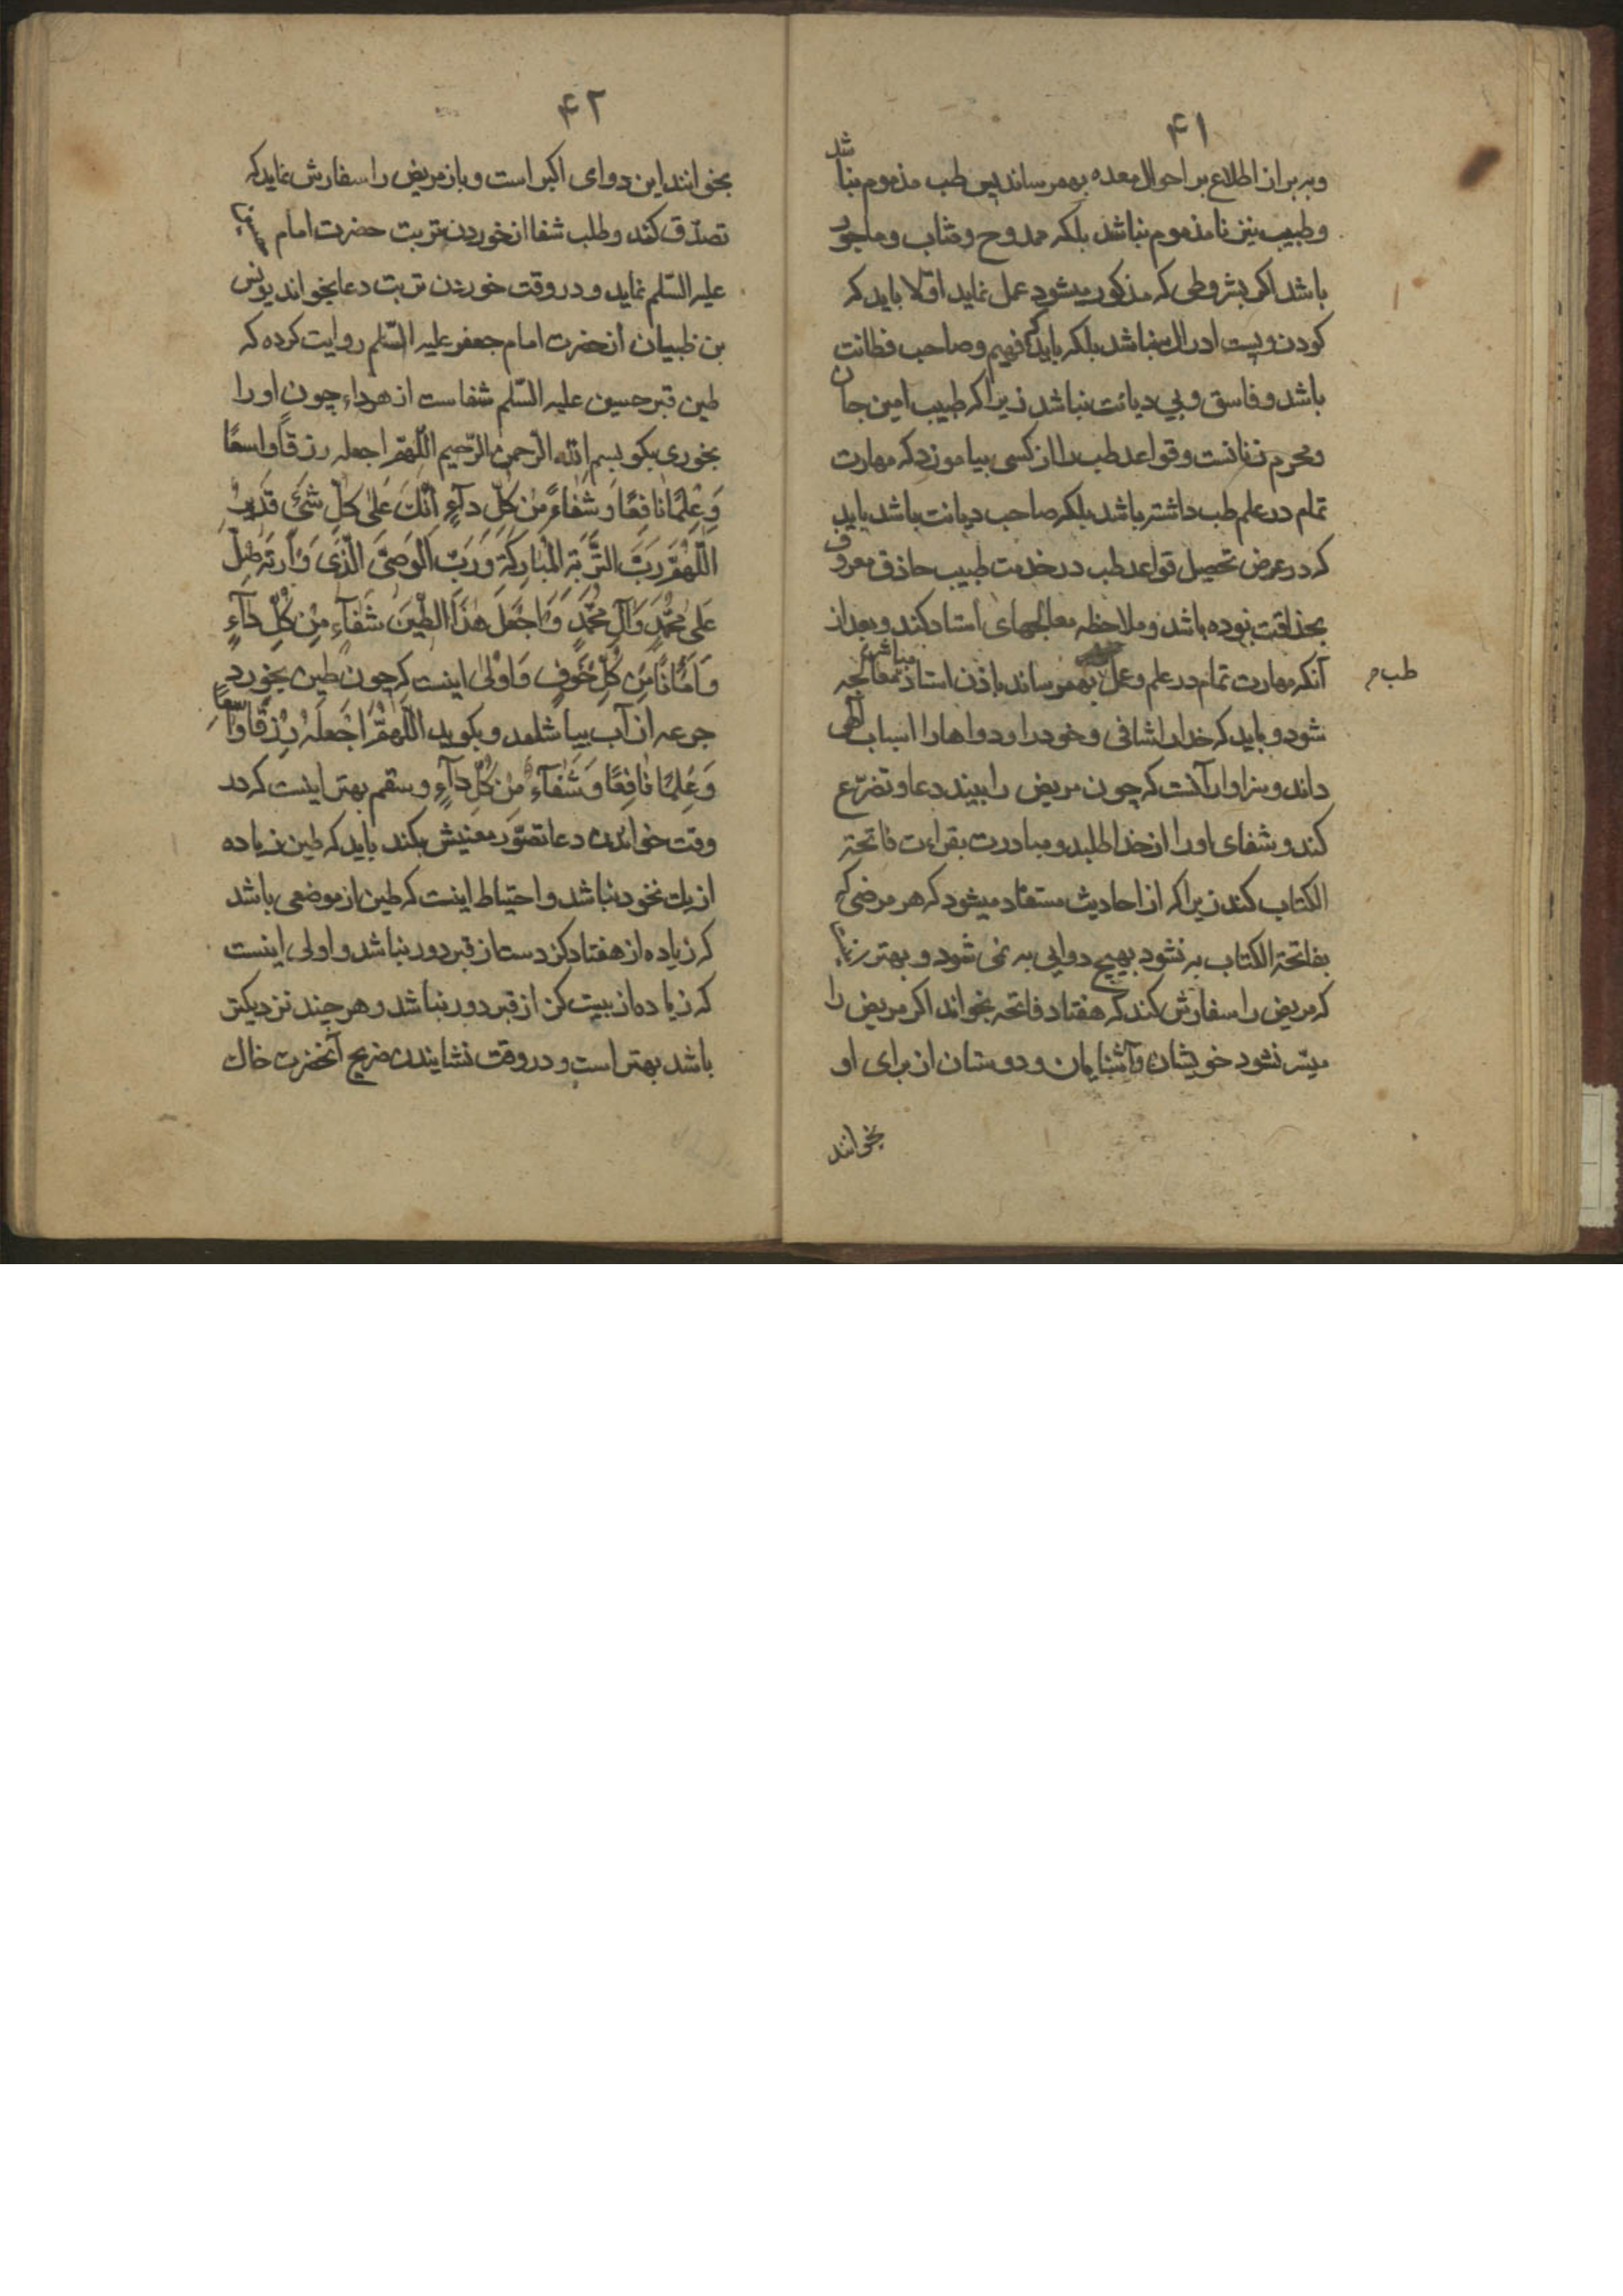 ۴۱
و به براز اطلاع بر احوال معده بهمرساند پس طب مذموم نباشد
و طبیب نیز نامذموم نباشد بلکه ممدوح و مثاب و ماجور
باشد اگر بشروطی که مذکور میشود عمل نماید اوّلا باید که
کودن و پست ادراک نباشد بلکه باید که فهیم و صاحب فطانت
باشد و فاسق و بی دیانت نباشد زیرا که طبیب امین جان
و محرم زنانست و قواعد طب را از کسی بیاموزد که مهارت
تمام در علم طب داشته باشد بلکه صاحب دیانت باشد باید
که در عرض تحصیل قواعد طب در خدمت طبیب حاذق معروف
بحذاقت بوده باشد و ملاحظه معالجهای استاد کند و بعد از
آنکه مهارت تمام در علم و عمل بهمرساند باذن استاد مباشر معالجه
طب م
شود و باید که خدا را شافی و خود را و دواها را اسباب الهی
داند و سزاوار آنست که چون مریض را ببیند دعا و تضرّع
کند و شفای او را از خدا طلبد و مبادرت بقراءت فاتحة
الکتاب کند زیرا که از احادیث مستفاد میشود که هر مرضی که
بفاتحة الکتاب به نشود بهیچ دوایی به نمی شود و بهتر
که مریض را سفارش کند که هفتاد فاتحه بخواند اگر مریض را
میسّر نشود خویشان و آشنایان و دوستان از برای او
بخوانند
۴۲
بخوانند این دوای اکبر است و باز مریض را سفارش نماید که
تصدّق کند و طلب شفا از خوردن تربت حضرت امام
علیه السّلم نماید و در وقت خوردن تربت دعا بخواند یونس
بن ظبیان از حضرت امام جعفر علیه السّلم روایت کرده که
طین قبر حسین علیه السّلم شفاست از هر داء چون او را
بخوری بکو بسم الله الرّحمن الرّحیم اللّهمّ اجعله رزقًا واسعًا
وَعِلْمًا نافِعًا وَ شِفاءً مِنْ كُلِّ دآءٍ اِنَّكَ عَلىٰ كُلِّ شَئٍ قَدیرٌ
اَللّٰهُمَّ رَبَّ التُّرْبَةِ الْمُبارَكَةِ وَ رَبَّ الْوَصِیِّ الَّذی وَارَتْهُ صَلِّ
عَلىٰ مُحَمَّدٍ وَ آلِ مُحَمَّدٍ وَ اجْعَلْ هٰذَا الطّینَ شِفآءً مِنْ كُلِّ دآءٍ
وَ اَمانًا مِنْ كُلِّ خَوْفٍ وَ اَوْلیٰ اینست که چون طین بخورد
جرعه از آب بیاشامد و بکوید اَللّٰهُمَّ اجْعَلْهُ رِزْقًا واسِعًا
وَ عِلْمًا نافِعًا وَ شِفآءً مِنْ كُلِّ دآءٍ و سقم بهتر اینست که در
وقت خواندن دعا تصوّر معنیش بکند باید که طین زیاده
از یك نخود نباشد و احتیاط اینست که طین از موضعی باشد
که زیاده از هفتاد کز دست از قبر دور نباشد و اولی اینست
که زیاده از بیست کز از قبر دور نباشد و هر چند نزدیکتر
باشد بهتر است و در وقت نشایندن ضریح آنحضرت خاك